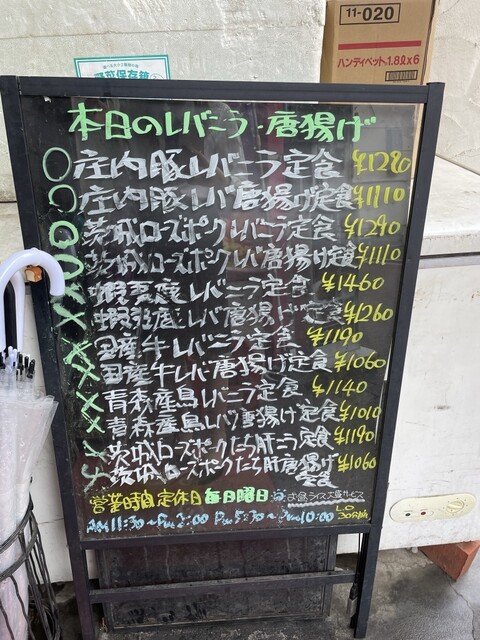 11-020
ハンディペット1.8ℓx6
野菜保存箱
本日のレバニラ・唐揚げ
○庄内豚レバニラ定食 ¥1280
○庄内豚レバ唐揚げ定食 ¥1110
○茨城ローズポークレバニラ定食 ¥1290
○茨城ローズポークレバ唐揚げ定食 ¥1110
×蝦夷鹿レバニラ定食 ¥1460
×蝦夷鹿レバ唐揚げ定食 ¥1260
×国産牛レバニラ定食 ¥1190
×国産牛レバ唐揚げ定食 ¥1060
×青森産鳥レバニラ定食 ¥1140
×青森産鳥レバ唐揚げ定食 ¥1010
×茨城ローズポークたち肝ニラ定食 ¥1190
×茨城ローズポークたち肝唐揚げ定食 ¥1060
営業時間 定休日 毎日曜日
定食ライス大盛サービス
AM11:30~PM2:00 PM5:30~PM10:00 L.O 30分前